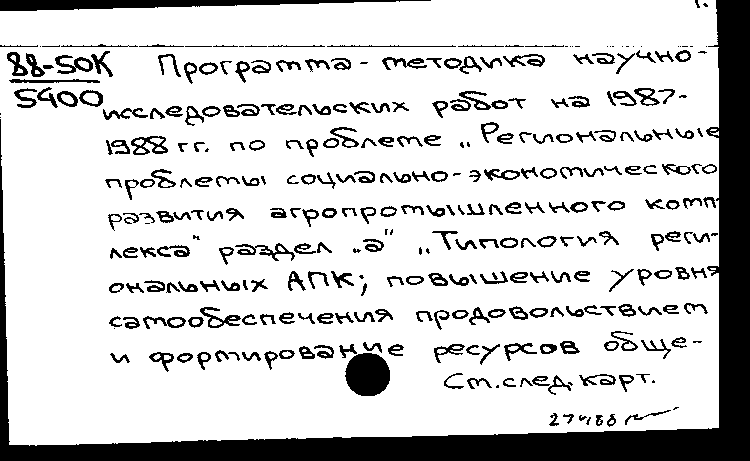 1.
88-50К Программа-методика научно-
5400 исследовательских работ на 1987-
1988 гг. по проблеме „Региональные
проблемы социально-экономического
развития агропромышленного комп-
лекса" раздел „а" „Типология реги-
ональных АПК; повышение уровня
самообеспечения продовольствием
и формирование ресурсов обще-
См. след. карт.